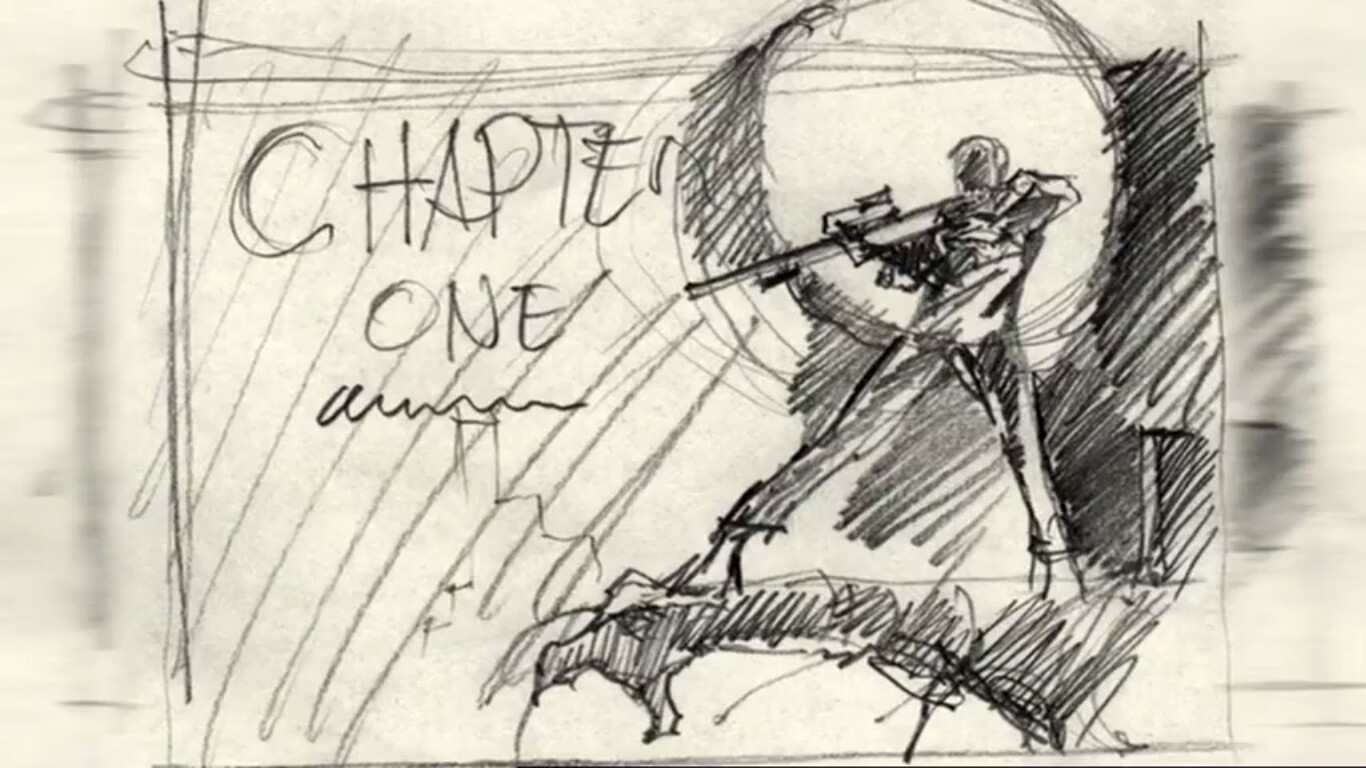 CHAPTER
ONE